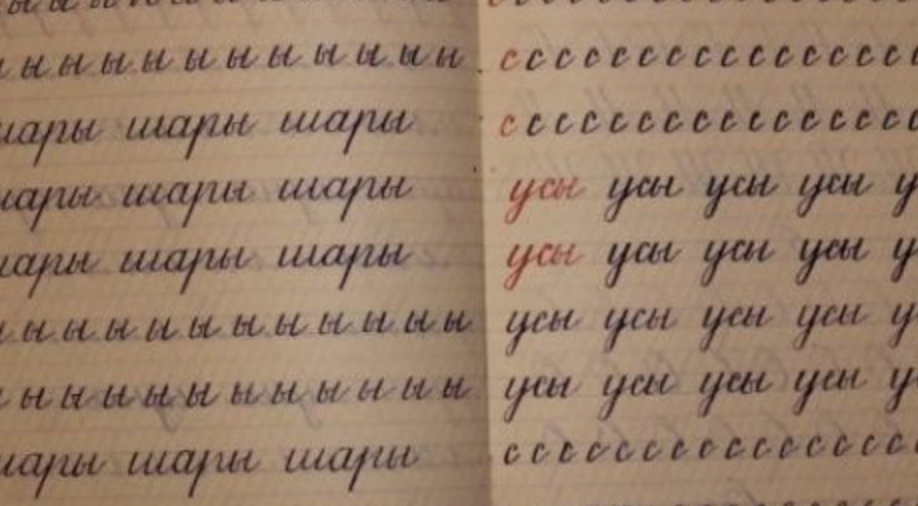 ы ы ы ы ы ы ы ы ы ы ы
шары шары шары
шары шары шары
шары шары шары
ы ы ы ы ы ы ы ы ы ы ы
ы ы ы ы ы ы ы ы ы ы ы
шары шары шары
с с с с с с с с с с с с с с с
с с с с с с с с с с с с с с с
усы усы усы усы у
усы усы усы усы у
усы усы усы усы у
усы усы усы усы у
с с с с с с с с с с с с с с с